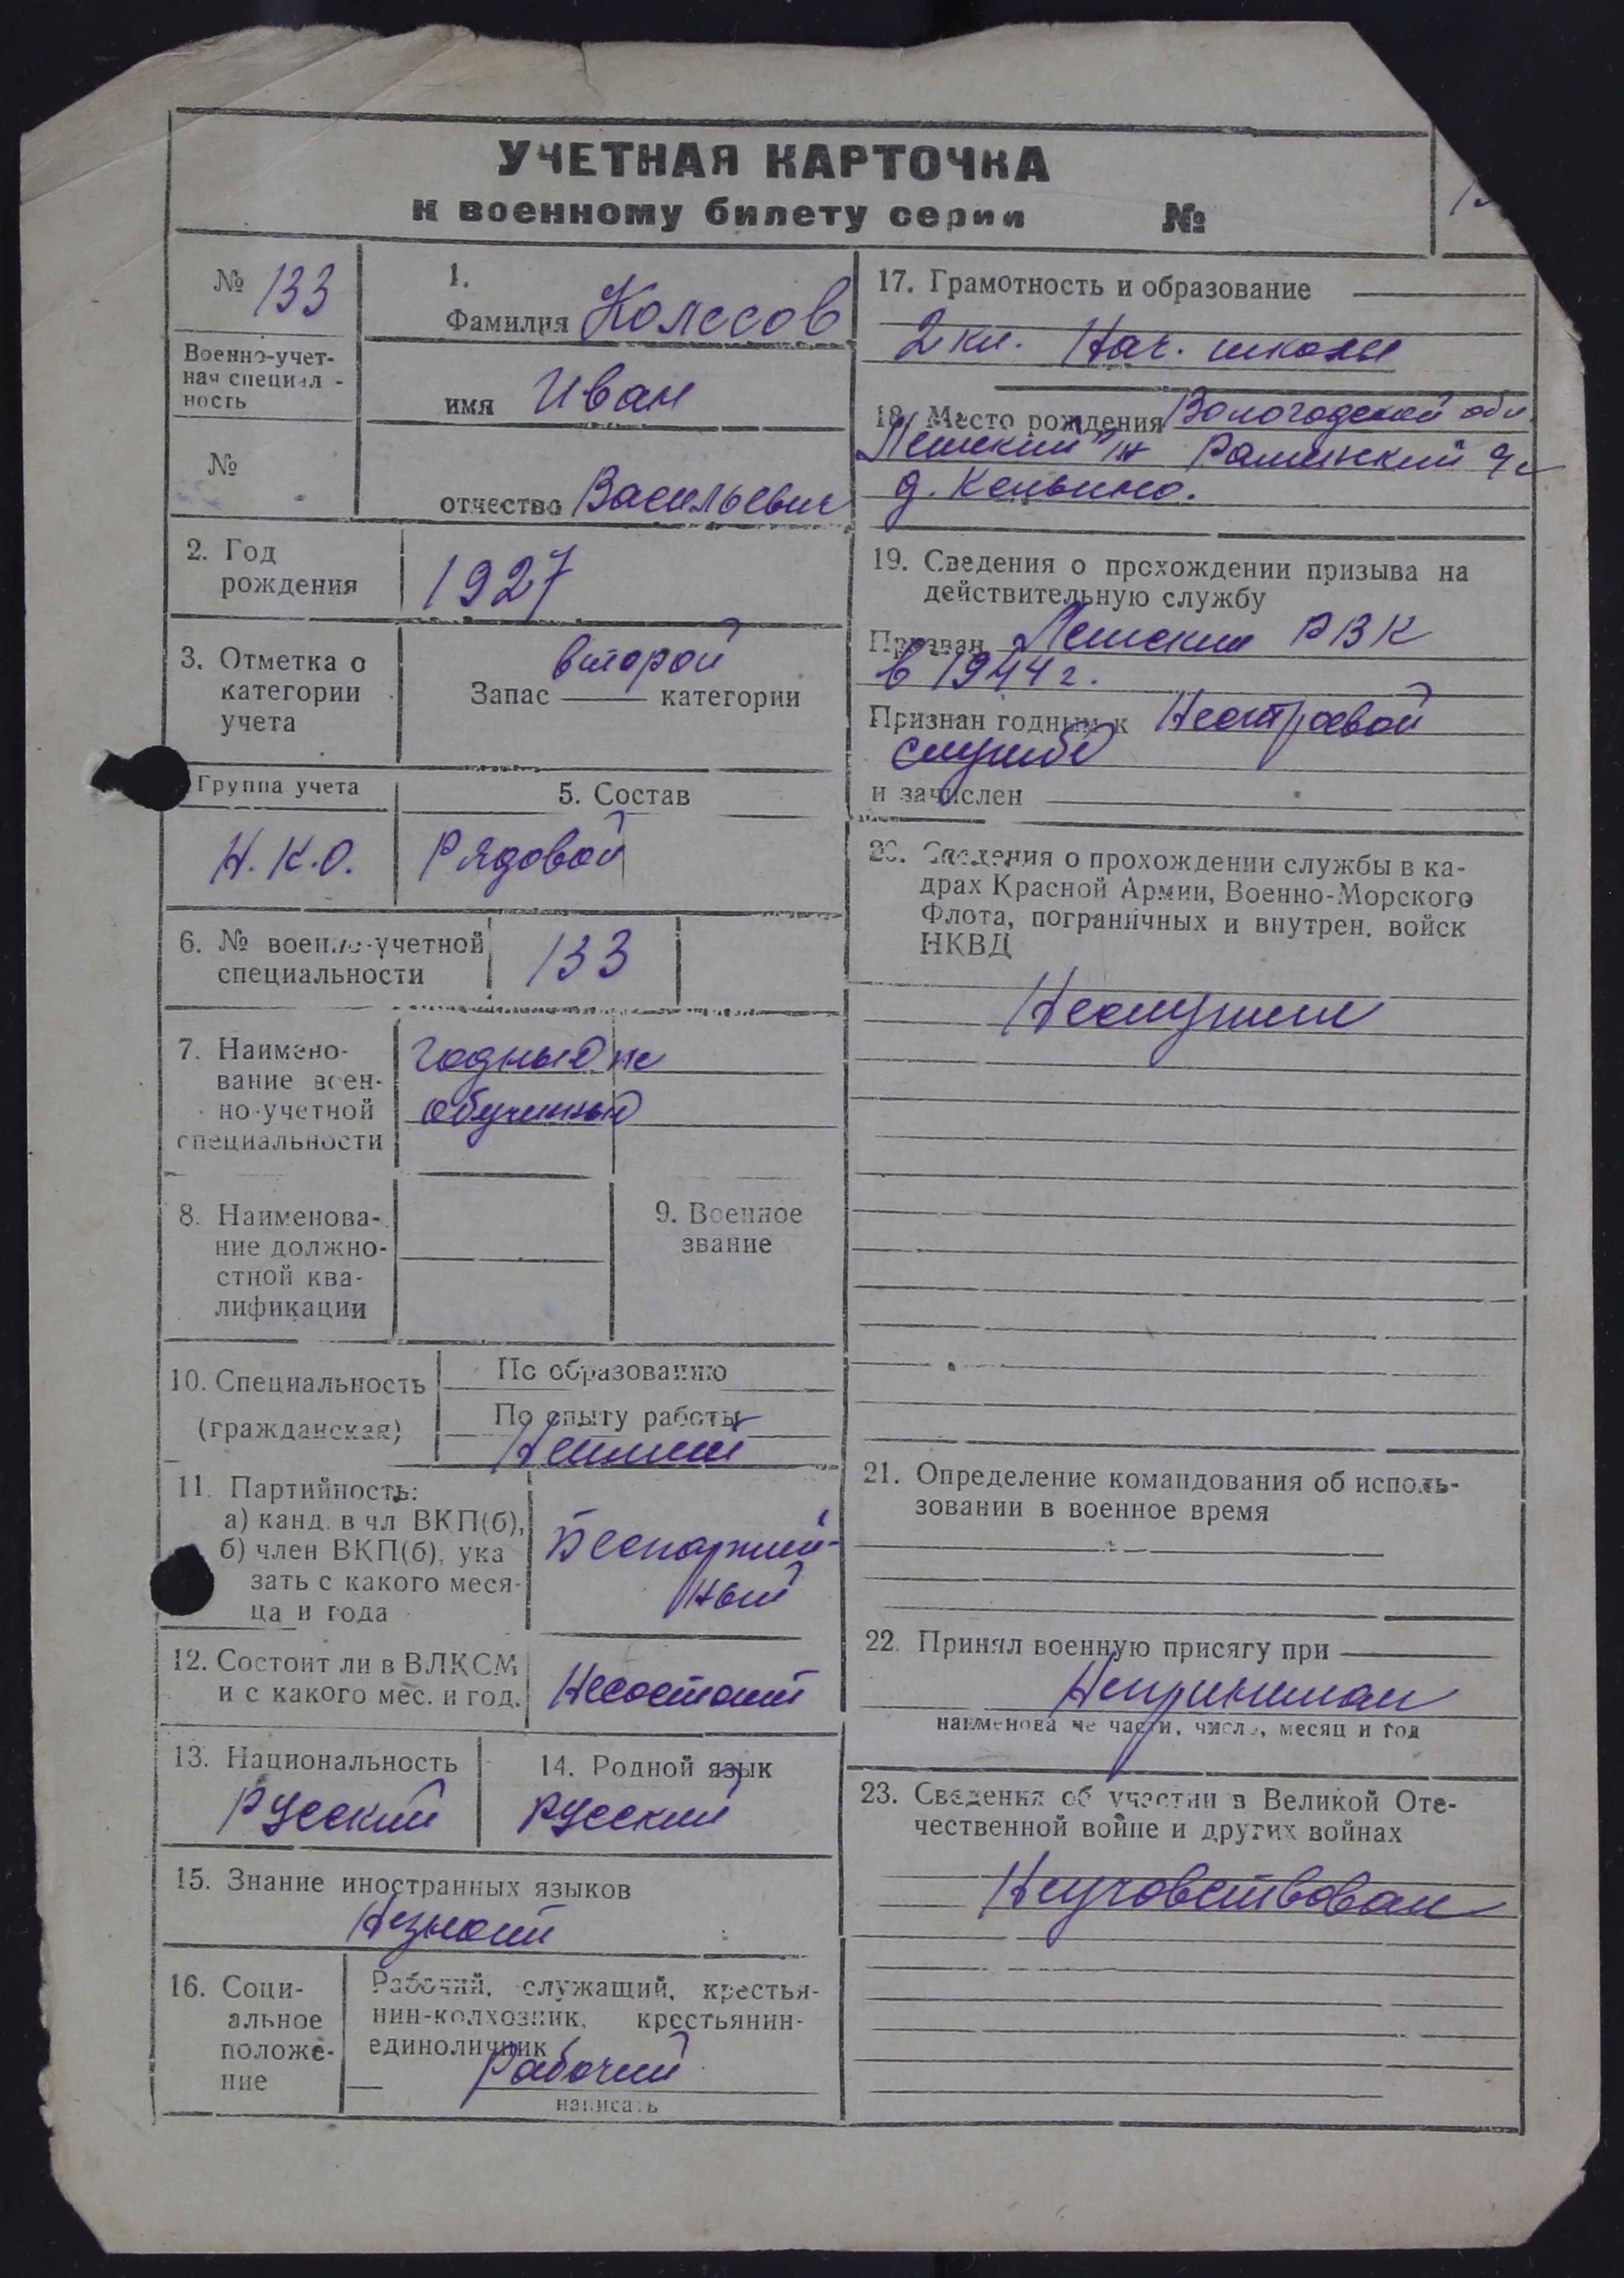 УЧЕТНАЯ КАРТОЧКА
к военному билету серии №
№ 133
Военно-учет-
ная специал-
ность
№
1.
Фамилия Колесов
имя Иван
отчество Васильевич
2. Год
рождения
1927
3. Отметка о
категории
учета
второй
Запас категории
Группа учета
Н.К.О.
5. Состав
Рядовой
6. № военно-учетной
специальности
133
7. Наимено-
вание воен-
но-учетной
специальности
годный не
обученный
8. Наименова-
ние должно-
стной ква-
лификации
9. Военное
звание
10. Специальность
(гражданская)
По образованию
По опыту работы
Неимеет
11. Партийность:
а) канд. в чл ВКП(б),
б) член ВКП(б), ука
зать с какого меся-
ца и года
Беспартий-
ный
12. Состоит ли в ВЛКСМ
и с какого мес. и год.
Несостоит
13. Национальность
Русский
14. Родной язык
Русский
15. Знание иностранных языков
Незнает
16. Соци-
альное
положе-
ние
Рабочий, служащий, крестья-
нин-колхозник, крестьянин-
единоличник
Рабочий
написать
17. Грамотность и образование
2 кл. Нач. школы
18. Место рождения Вологодской обл.
д.
19. Сведения о прохождении призыва на
действительную службу
Призван РВК
в 1944 г.
Признан годным к Нестроевой
службе
и зачислен
20. Сведения о прохождении службы в ка-
драх Красной Армии, Военно-Морского
Флота, пограничных и внутрен. войск
НКВД
Неслужил
21. Определение командования об исполь-
зовании в военное время
22. Принял военную присягу при
Непринимал
наименова ие части, число, месяц и год
23. Сведения об участии в Великой Оте-
чественной войне и других войнах
Неучавствовал